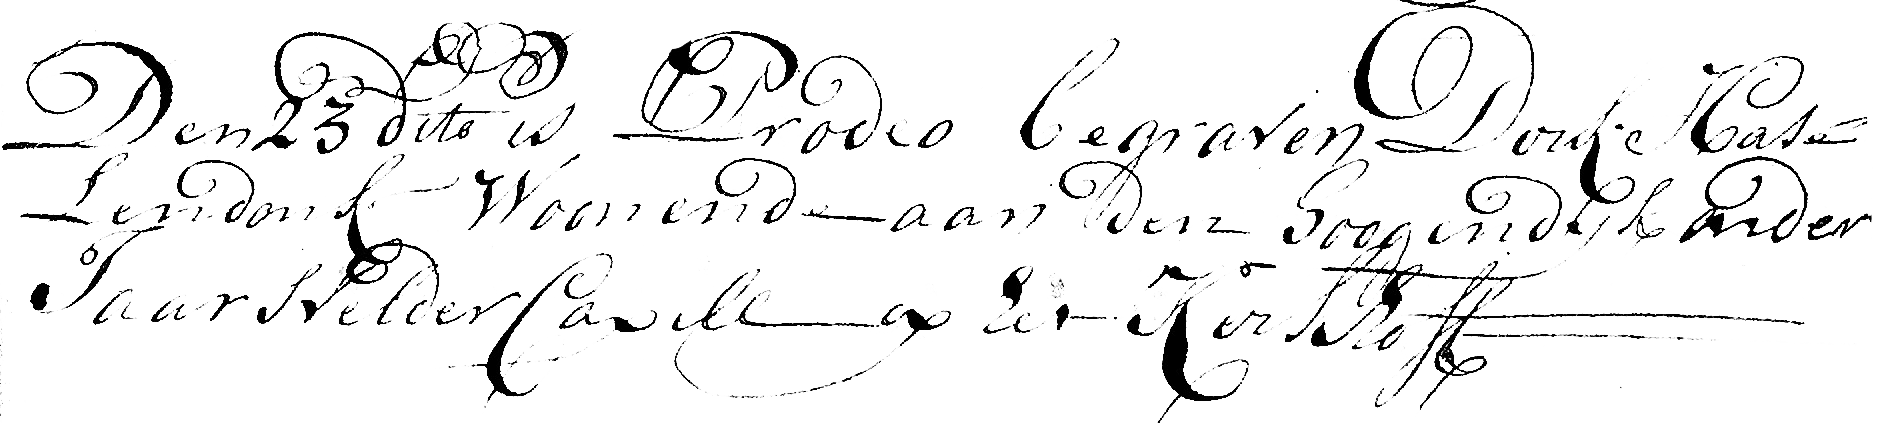 Den 23 dito is Prodeo begraven Dirk Kaste
Lendonk Woonende aan den hoogendyk onder
Jaar Helder Capelle op het Kerkhoff